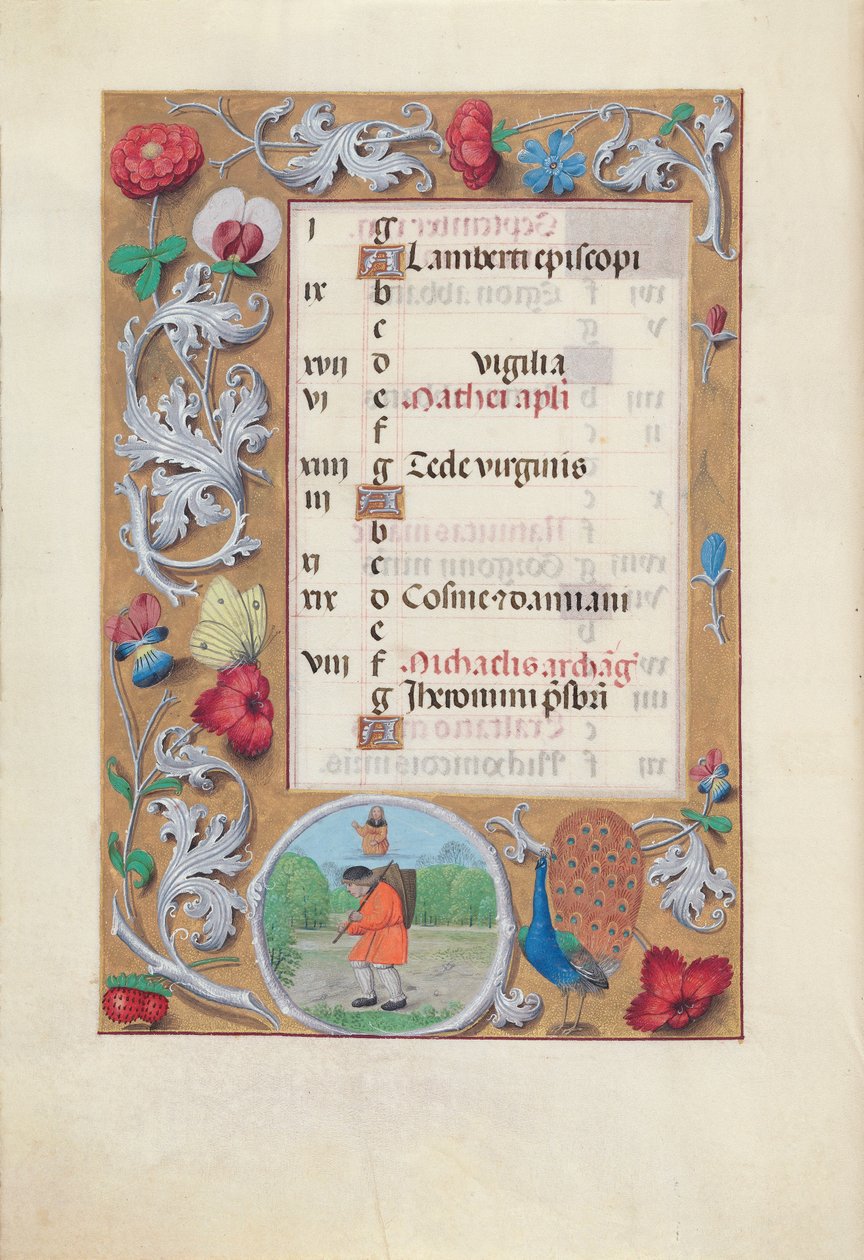 I g
A Lamberti episcopi
IX b
c
XVII d vigilia
VI e Mathei apli
f
XIIII g Tecle virginis
III A
b
XI c
XIX d Cosme ⁊ damiani
e
VIII f Michaelis archãg
g Iheronimi p̃sbri
A